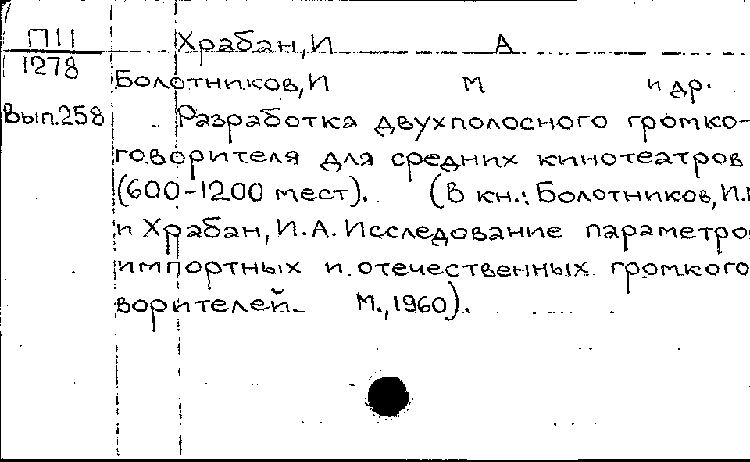 П11 Храбан, И А
1278
Болотников, И М и др.
Вып.258 Разработка двухполосного громко-
говорителя для средних кинотеатров
(600-1200 мест). (В кн.: Болотников, И.
и Храбан, И.А. Исследование параметро
импортных и отечественных громкого
ворителей. М., 1960).